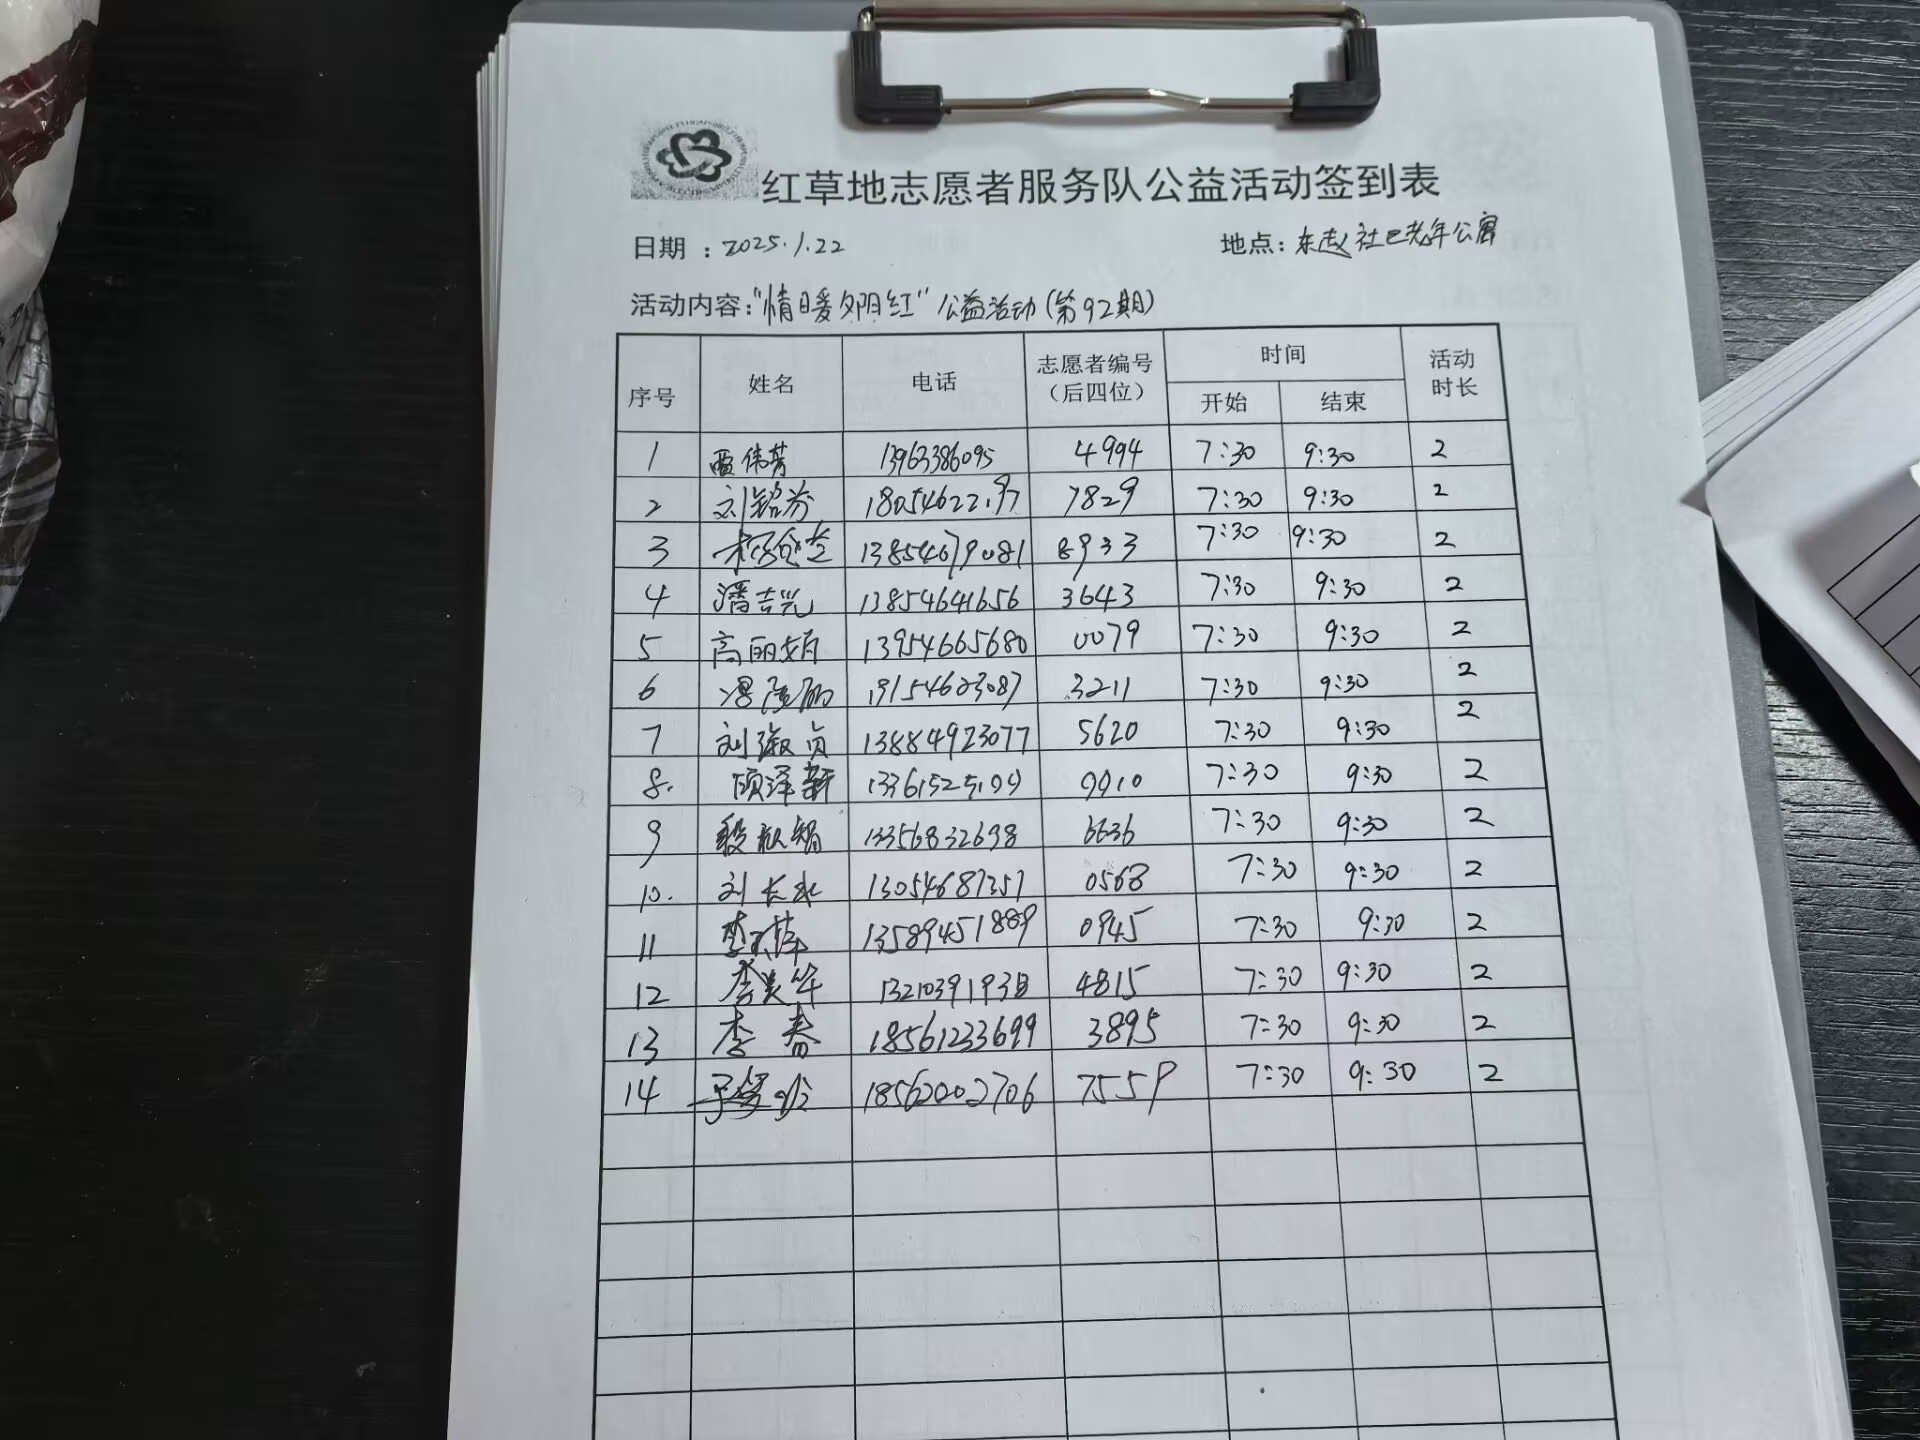 红草地志愿者服务队公益活动签到表
日期：2025.1.22 地点：东赵社区老年公寓
活动内容："情暖夕阳红"公益活动(第92期)
序号 姓名 电话 志愿者编号（后四位） 时间 活动时长
开始 结束
1 伟芳 13963386095 4994 7:30 9:30 2
2 刘铭芬 7829 7:30 9:30 2
3 13854679081 8933 7:30 9:30 2
4 潘吉兴 13854641656 3643 7:30 9:30 2
5 高丽娟 13954665680 0079 7:30 9:30 2
6 19154623087 3211 7:30 9:30 2
7 刘淑贞 13884923077 5620 7:30 9:30 2
8. 顾泽新 9910 7:30 9:30 2
9 13356832698 6636 7:30 9:30 2
10. 刘长水 13054687357 0568 7:30 9:30 2
11 李 13589451889 0945 7:30 9:30 2
12 李美华 4815 7:30 9:30 2
13 李春 18561233699 3895 7:30 9:30 2
14 18562002706 7559 7:30 9:30 2